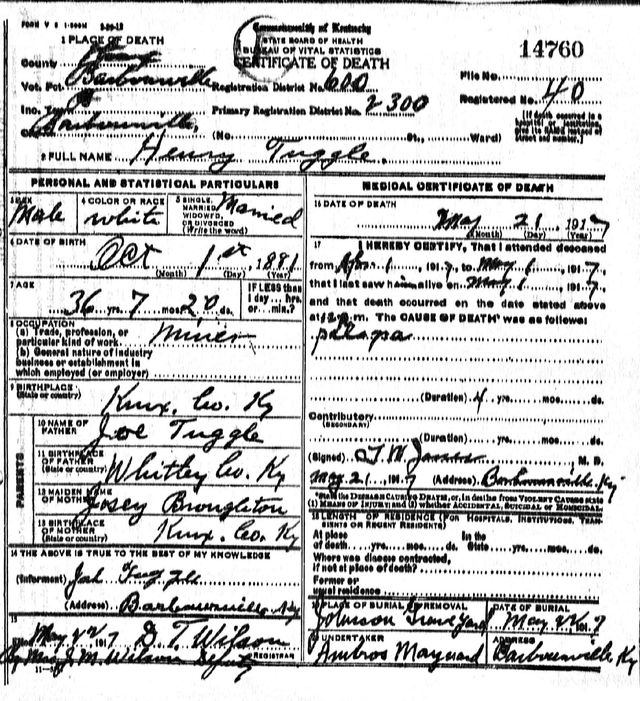 FORM V S 1-500M 3-20-13
Commonwealth of Kentucky
STATE BOARD OF HEALTH
BUREAU OF VITAL STATISTICS
CERTIFICATE OF DEATH
14760
1 PLACE OF DEATH
County Knox
Vot. Pct. Barbourville Registration District No. 600 File No.
Inc. Town Primary Registration District No. 2300 Registered No. 40
City Barbourville, (No. St., Ward)
[If death occurred in a hospital or institution, give its NAME instead of street and number.]
2 FULL NAME Henry Tuggle.
PERSONAL AND STATISTICAL PARTICULARS
3 SEX Male
4 COLOR OR RACE white
5 SINGLE, MARRIED, WIDOWED, OR DIVORCED (Write the word) Married
6 DATE OF BIRTH
Oct 1st 1881
(Month) (Day) (Year)
7 AGE
36 yrs. 7 mos. 20 ds.
IF LESS than 1 day... hrs. or min.?
8 OCCUPATION
(a) Trade, profession, or particular kind of work Miner
(b) General nature of industry
business or establishment in
which employed (or employer)
9 BIRTHPLACE
(State or country) Knox. Co. Ky
PARENTS
10 NAME OF FATHER Joe Tuggle
11 BIRTHPLACE OF FATHER (State or country) Whitley Co. Ky
12 MAIDEN NAME OF MOTHER Josey Broughton
13 BIRTHPLACE OF MOTHER (State or country) Knox. Co. Ky
14 THE ABOVE IS TRUE TO THE BEST OF MY KNOWLEDGE
(Informant)
(Address) Barbourville, Ky
15
Filed May 22 1917 D. T. Wilson
REGISTRAR
By M. Wilson Deputy
MEDICAL CERTIFICATE OF DEATH
16 DATE OF DEATH
May 21 1917
(Month) (Day) (Year)
17 I HEREBY CERTIFY, That I attended deceased
from Apr. 1, 1917, to May 1, 1917,
that I last saw him alive on May 1, 1917,
and that death occurred on the date stated above
at 12 m. The CAUSE OF DEATH* was as follows:
(Duration) 4 yrs. mos. ds.
Contributory
(SECONDARY)
(Duration) yrs. mos. ds.
(Signed) M. D.
May 21, 1917 (Address) Barbourville, Ky
*State the DISEASE CAUSING DEATH, or, in deaths from VIOLENT CAUSES state
(1) MEANS OF INJURY; and (2) whether ACCIDENTAL, SUICIDAL or HOMICIDAL.
18 LENGTH OF RESIDENCE (FOR HOSPITALS, INSTITUTIONS, TRANSIENTS OR RECENT RESIDENTS)
At place of death yrs. mos. ds. In the State yrs. mos. ds.
Where was disease contracted,
if not at place of death?
Former or
usual residence
19 PLACE OF BURIAL OR REMOVAL Johnson Grave Yard
DATE OF BURIAL May 22 1917
20 UNDERTAKER Ambros Maynard
ADDRESS Barbourville Ky